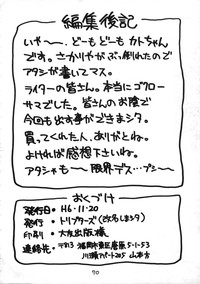 編集後記
いゃ〜〜、どーもどーもカトちゃん
です。さかりやがぶっ倒れたので
アタシが書いてマス。
ライターの皆さん。本当にゴクロー
サマでした。皆さんのお陰で
今回も出す事ができまシタ。
買ってくれた人、ありがとね。
よければ感想下さいね。
アタシゃも〜〜限界デス…プシ〜
おくづけ
発行日・H6・11・20
発行・トリプターズ(改名しまシタ)
印刷・大友出版様
連絡先・〒813 福岡市東区唐原5-1-53
川瀬アパート205 山本方
70